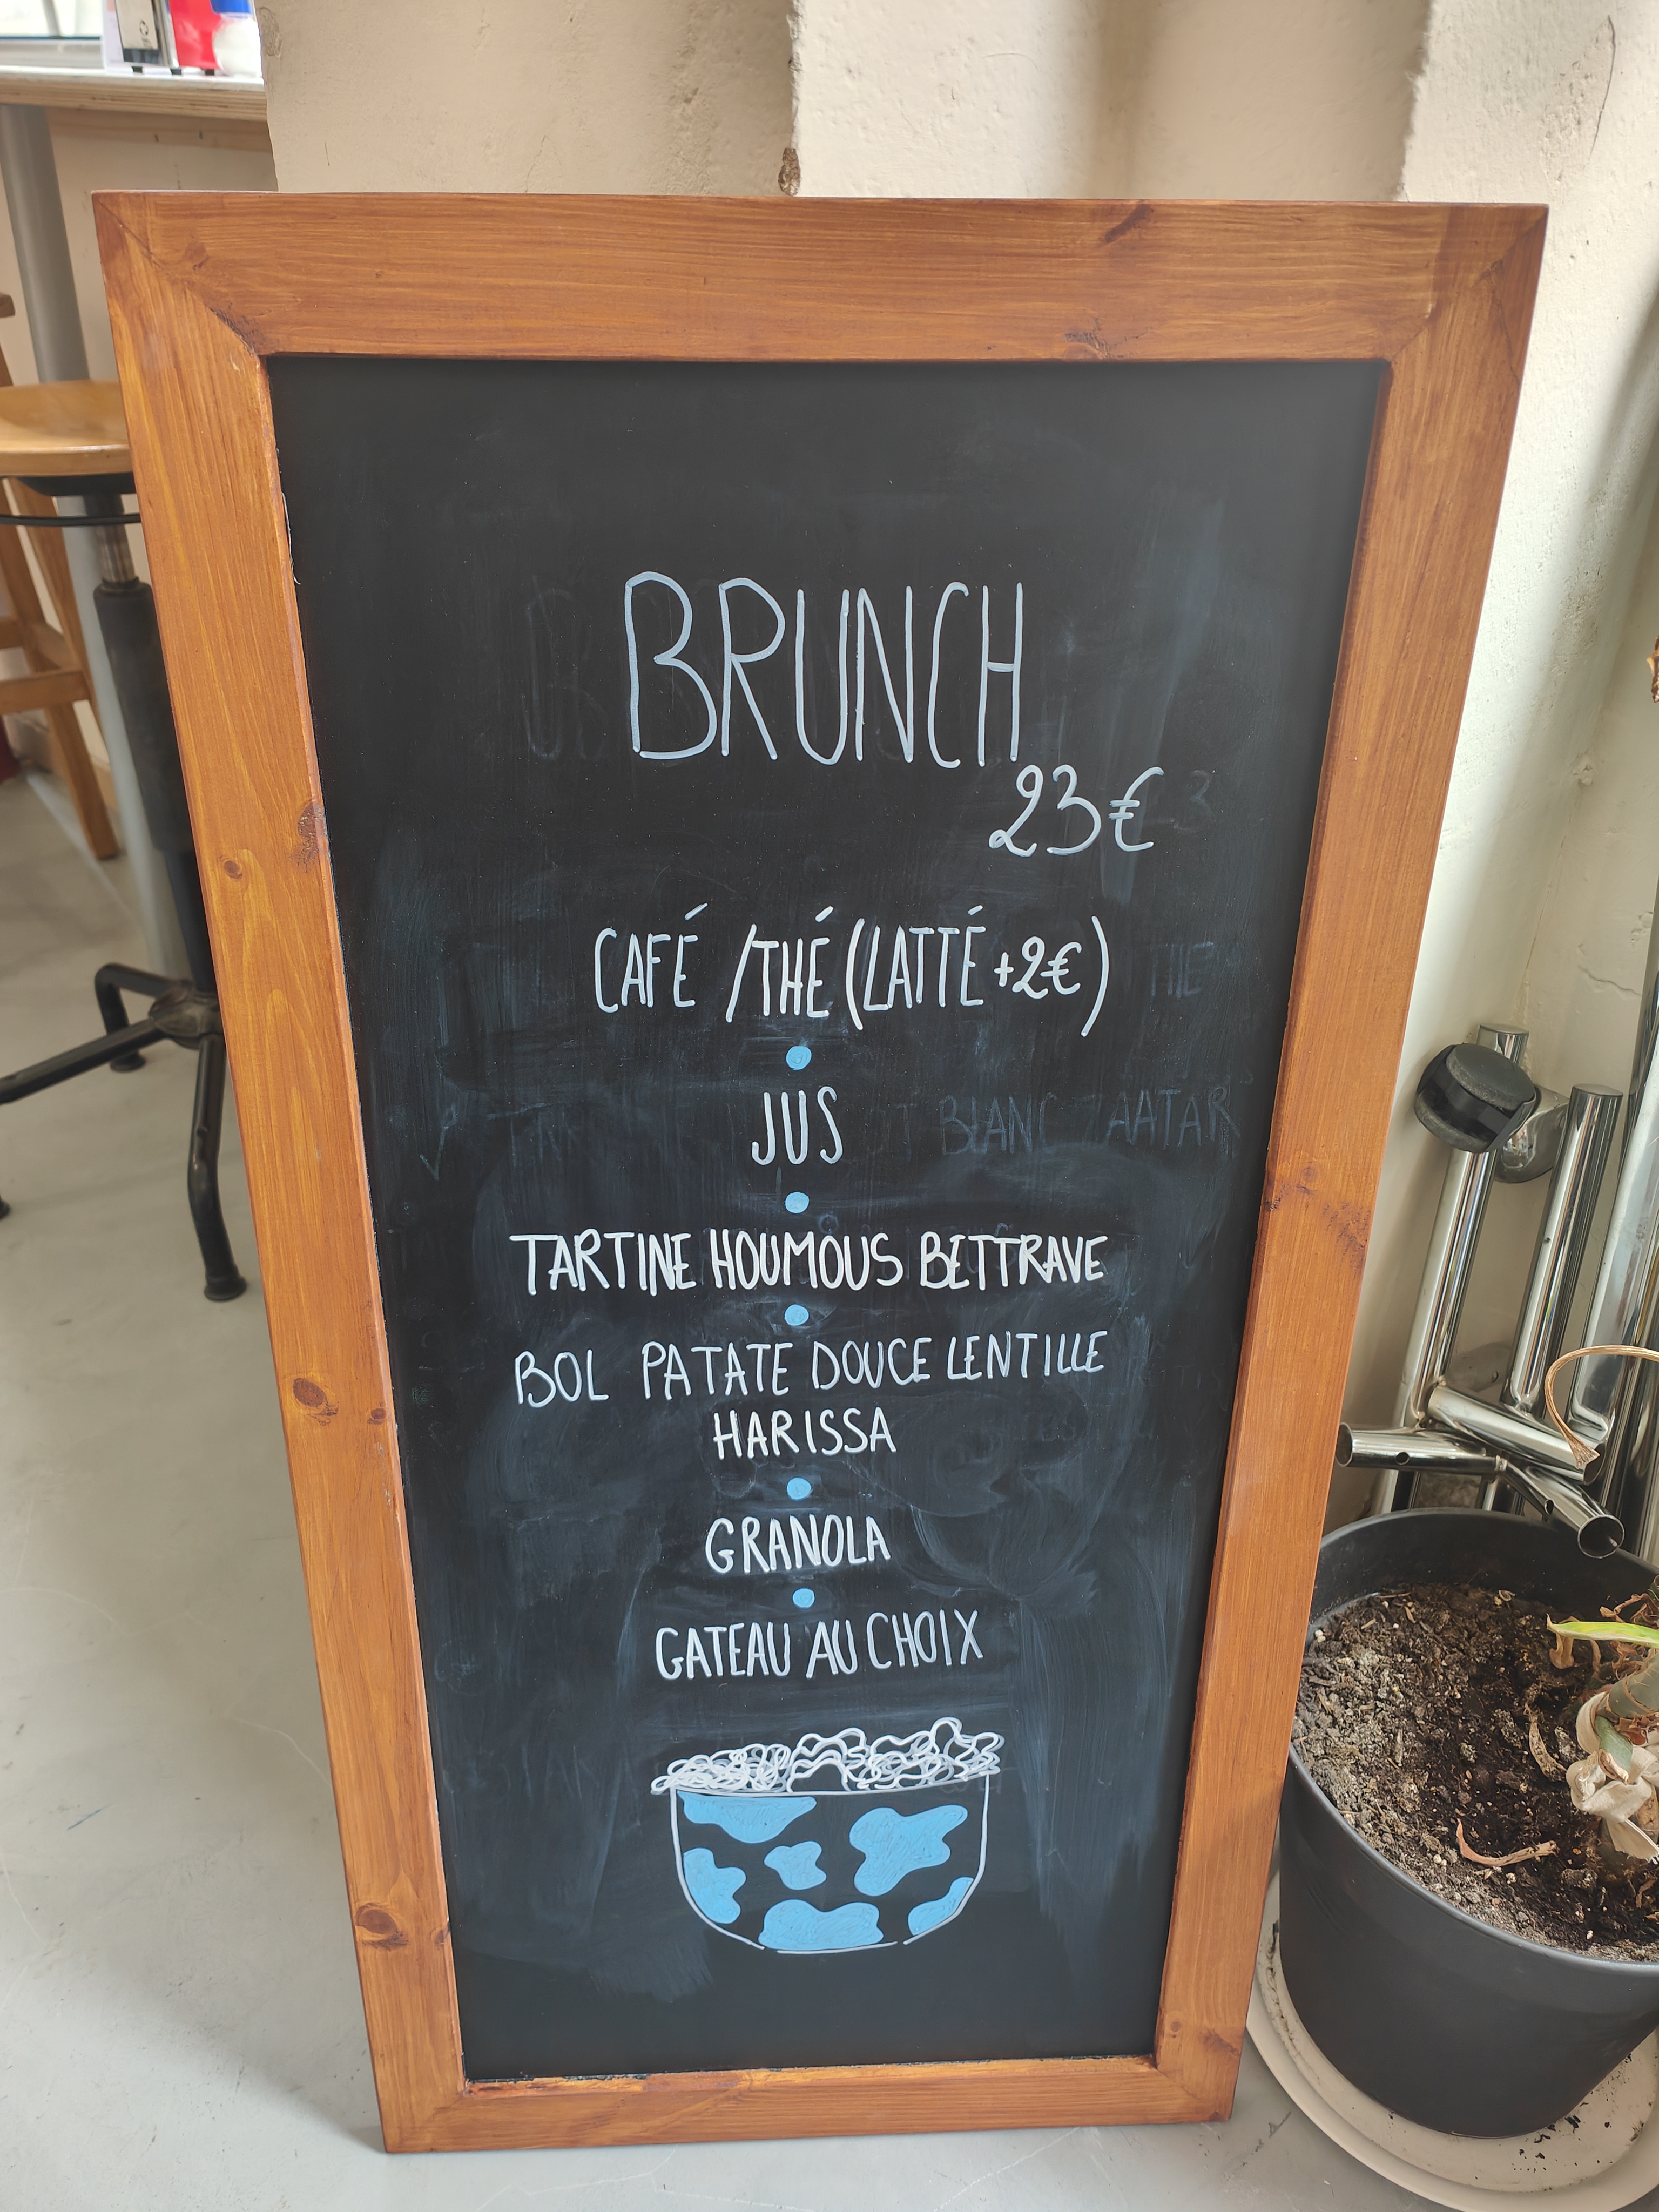 BRUNCH
23€
CAFÉ /THÉ (LATTÉ +2€)
JUS
TARTINE HOUMOUS BETTRAVE
BOL PATATE DOUCE LENTILLE
HARISSA
GRANOLA
GATEAU AU CHOIX